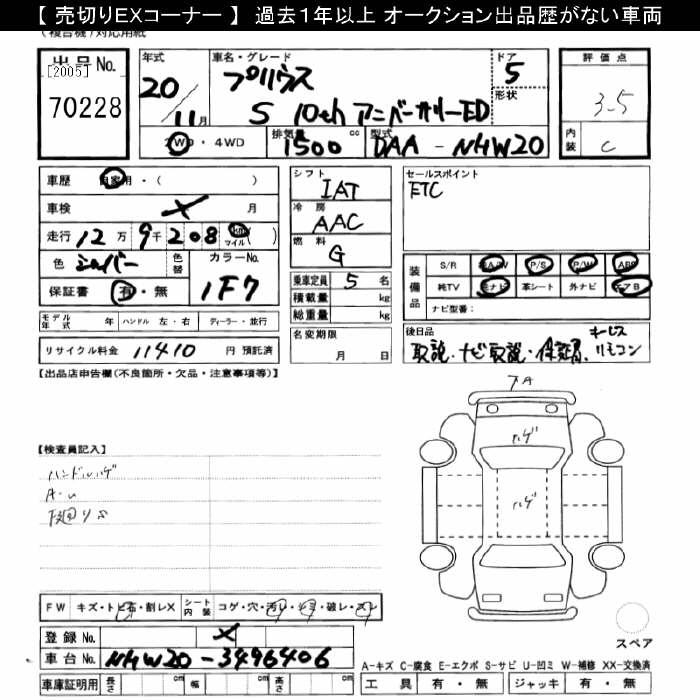 【 売切りEXコーナー 】 過去１年以上 オークション出品歴がない車両
(複合機)対応用紙
出品No. [2005] 70228
年式 20 / 11 月
車名・グレード プリウス
S 10th アニバーサリーED
ドア 5
形状
評価点 3.5
内装 C
2WD・4WD
排気量 1500 cc
型式 DAA - NHW20
車歴 自家用・( )
車検 ✗ 月
走行 12 万 9 千 2 0 8 km マイル ( )
色 シルバー 色替 カラーNo. 1F7
保証書 有・無
モデル年式 年 ハンドル 左・右 ディーラー・並行
リサイクル料金 11410 円 預託済
シフト IAT
冷房 AAC
燃料 G
乗車定員 5 名
積載量 kg
総重量 kg
名変期限 月 日
セールスポイント
ETC
装備品 S/R 純A/W P/S P/W ABS
純TV 純ナビ 革シート 外ナビ エアB
ナビ型番:
後日品 キーレス
取説・ナビ取説・保証書・リモコン
【出品店申告欄(不良箇所・欠品・注意事項等)】
【検査員記入】
ハンドルハゲ
A・U
下廻りS
フA
ハゲ
ハゲ
FW キズ・トビ石・割レX シート内装 コゲ・穴・汚レ・シミ・破レ・スレ
登録No. ✗
車台No. NHW20-3496406
車庫証明用 長さ cm 幅 cm 高さ cm
スペア
A-キズ C-腐食 E-エクボ S-サビ U-凹ミ W-補修 XX-交換済
工具 有・無 ジャッキ 有・無